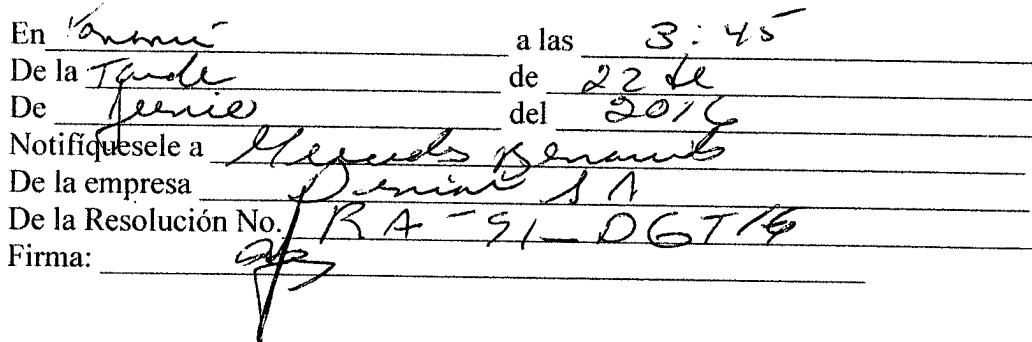 En Panamá a las 3:45
De la Tarde de 22 de
De Junio del 2016
Notifíquesele a
De la empresa S A
De la Resolución No. RA-91-DGT/16
Firma: